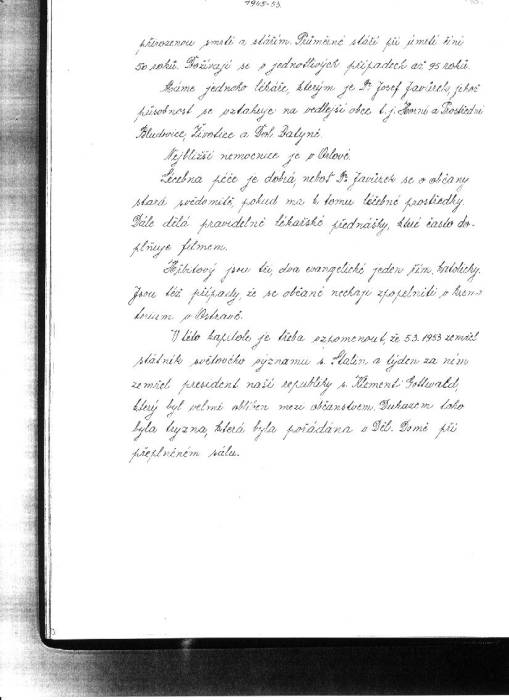 1945-53.
přirozenou smrtí a stářím. Průměrné stáří při úmrtí činí
50 roků. Dožívají se v jednotlivých případech až 95 roků.
Máme jednoho lékáře, kterým je Dr. Josef Javůrek, jehož
působnost se vztahuje na vedlejší obce t. j. Horní a Prostřední
Bludovice, Životice a Dol. Datyně.
Nejbližší nemocnice je v Orlové.
Lécebna péče je dobrá, neboť Dr. Javůrek se o občany
stará svědomitě, pokud má k tomu léčebné prostředky.
Dále dělá pravidelné lékařské přednášky, které často do-
plňuje filmem.
Hřbitovy jsou tři, dva evangelické jeden řím. katolický.
Jsou též případy, že se občané nechají zpopelniti v krem-
torium v Ostravě.
V této kapitole je třeba vzpomenout, že 5.3. 1953 zemřel
státník světového významu s. Stalin a týden za ním
zemřel president naší republiky s. Klement Gottwald,
který byl velmi oblíben mezi občanstvem. Důkazem toho
byla tryzna, která byla pořádána v Děl. Domě při
přeplněném sálu.